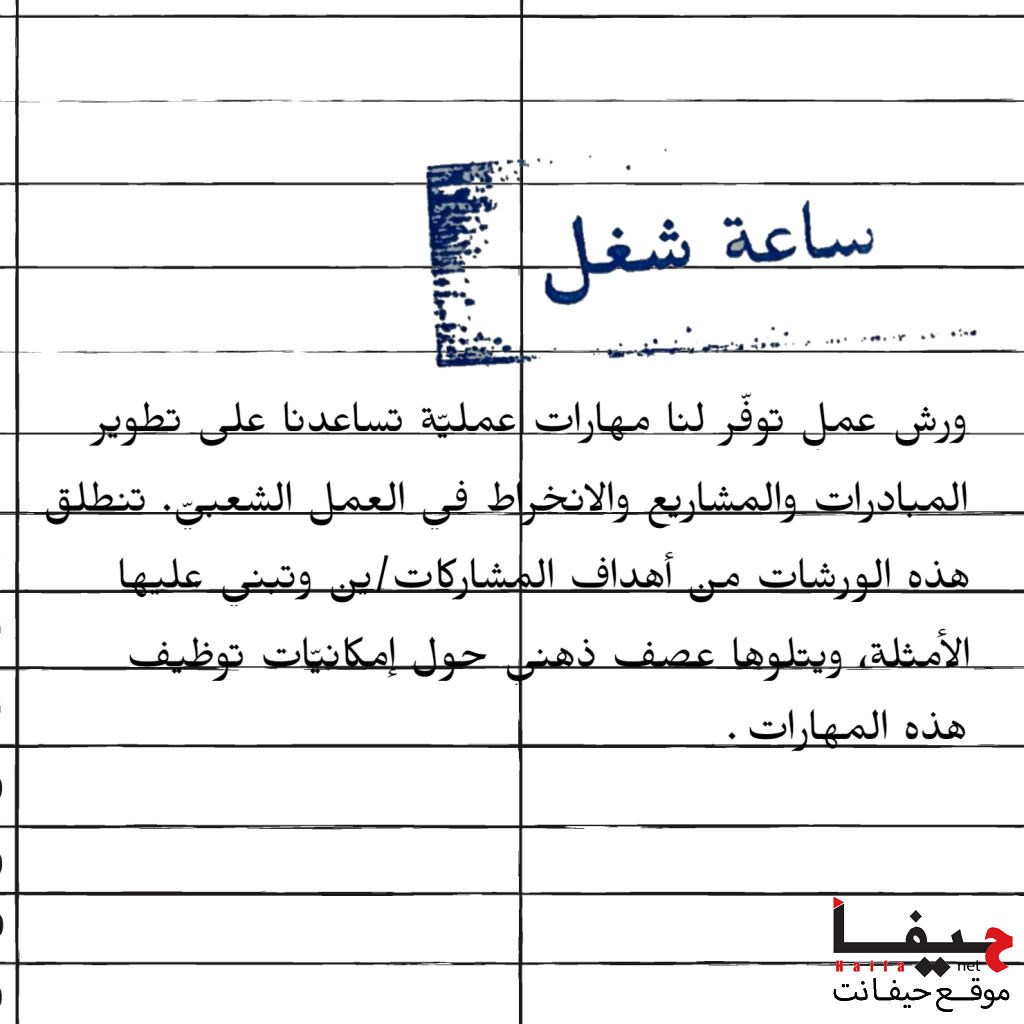 ساعة شغل
ورش عمل توفّر لنا مهارات عمليّة تساعدنا على تطوير
المبادرات والمشاريع والانخراط في العمل الشعبيّ. تنطلق
هذه الورشات من أهداف المشاركات/ين وتبني عليها
الأمثلة، ويتلوها عصف ذهني حول إمكانيّات توظيف
هذه المهارات.
حيفا
Haifa net
موقع حيفانت